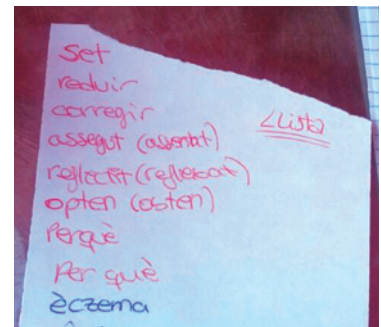 set
reduir
corregir
Llista
assegut (assentat)
reflectit (reflexat)
opten (osten)
Perquè
Per què
èczema